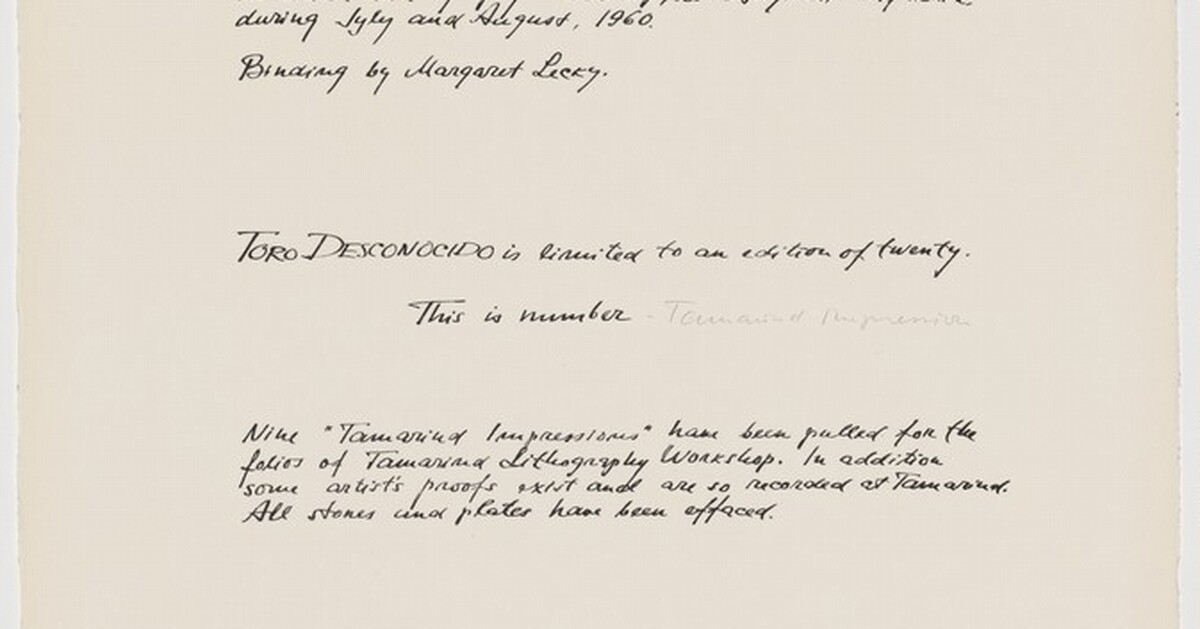 during Jyly and August, 1960.
Binding by Margaret Lecky.
TORO DESCONOCIDO is limited to an edition of twenty.
This is number - Tamarind Impression
Nine "Tamarind Impressions" have been pulled for the
folios of Tamarind Lithography Workshop. In addition
some artist's proofs exist and are so recorded at Tamarind.
All stones and plates have been effaced.